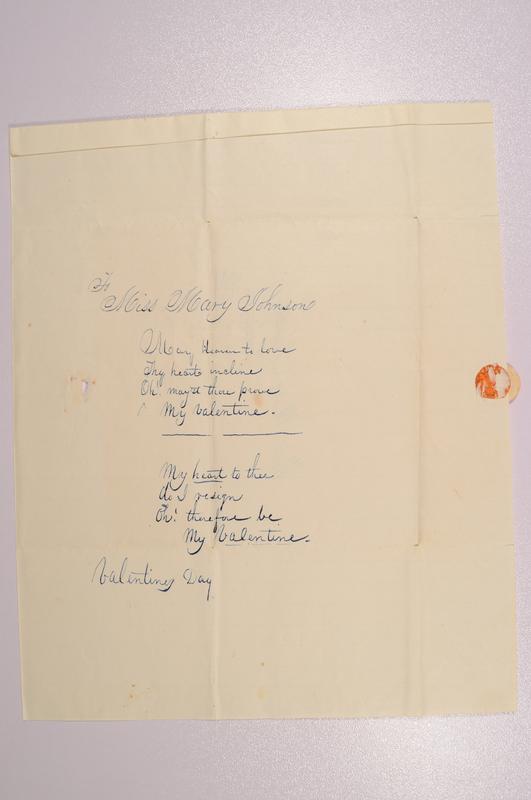 To
Miss Mary Johnson
May Heaven to love
Thy heart incline
Oh! may'st thou prove
My Valentine.
My heart to thee
do I resign
Oh! therefore be
My Valentine.
Valentines Day